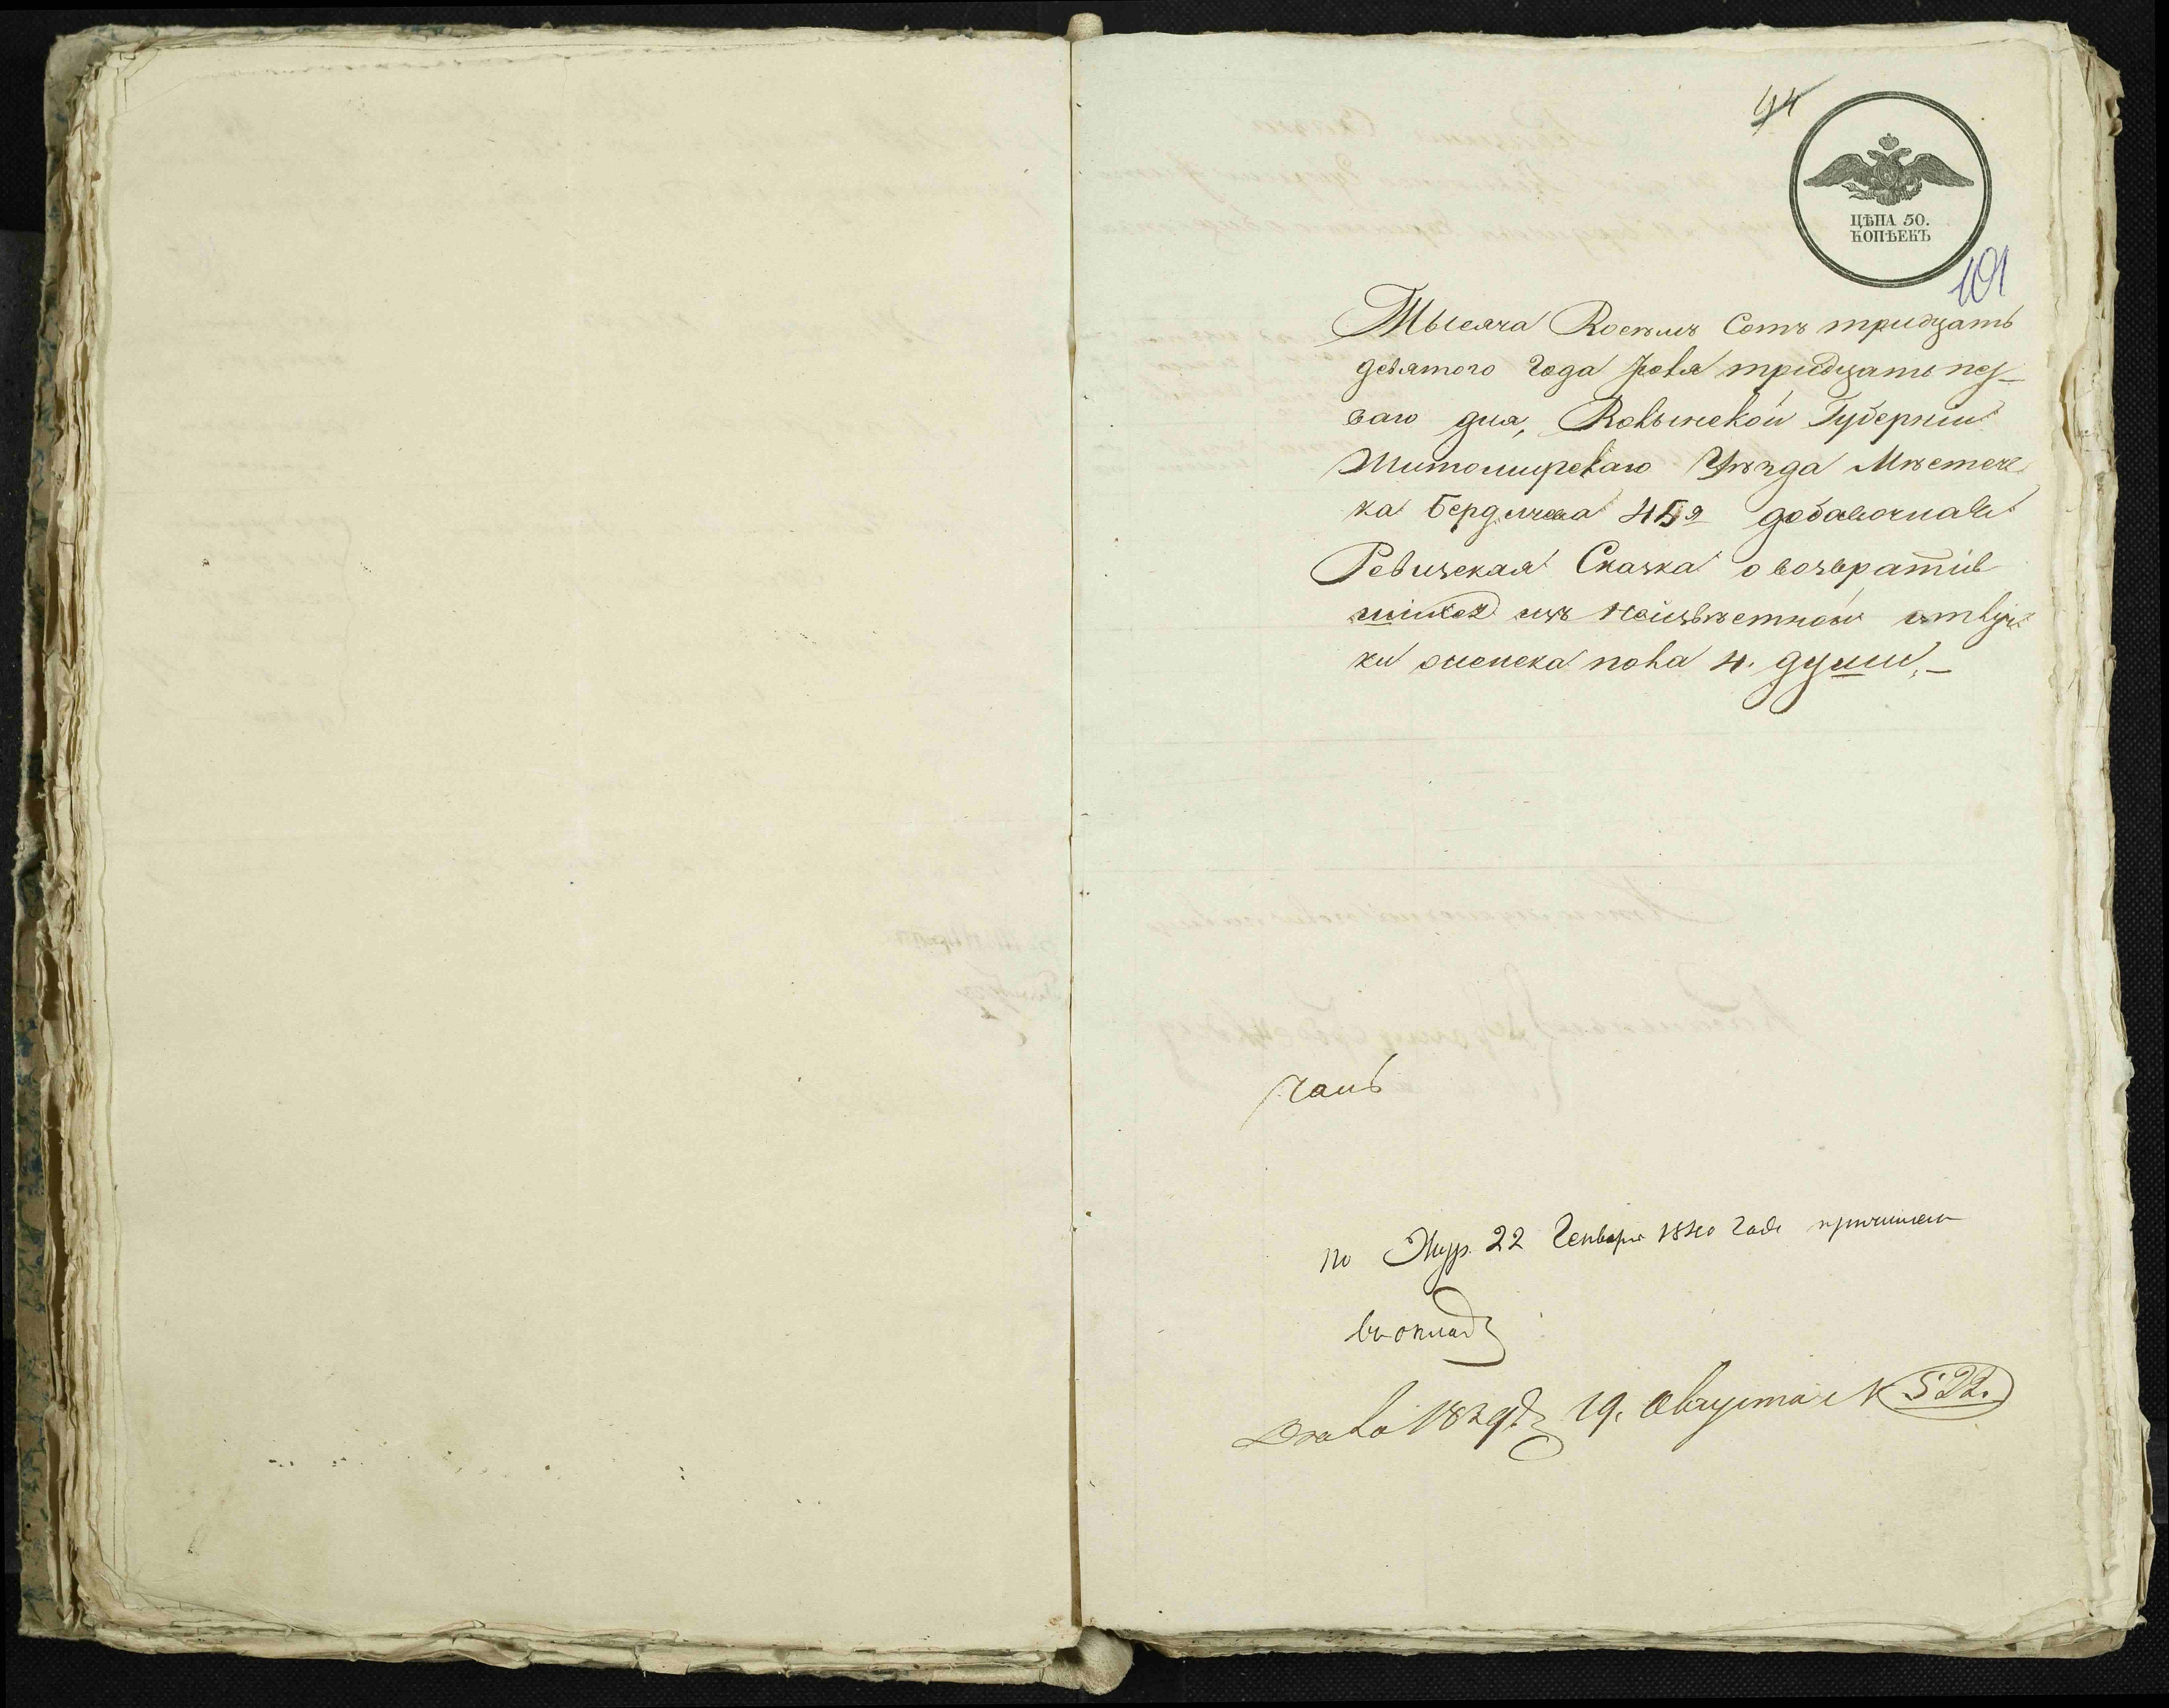 94
ЦѢНА 50.
КОПѢЕКЪ
101
Тысяча Восѣмъ Сотъ тридцать
девятого Года Іюля тридцать пер-
ваго дня, Волынской Губерніи
Житомирскаго Уѣзда Мѣстеч
ка Бердичева 45я добавочная
Ревизская Сказка о возвратив
шихся изъ Неизвѣстной отлуч
ки женска пола 4. души,-
по Жур. 22 Генваря 1840 Года причислен
въ окладъ
1839 19. Августа N 522.